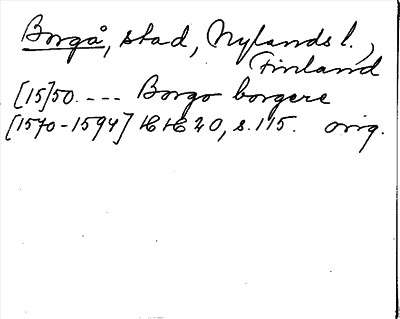 Borgå, stad, Nylands l.,
Finland
[15]50. --- Borgo borgere
[1570-1594] HH 20, s. 115. orig.